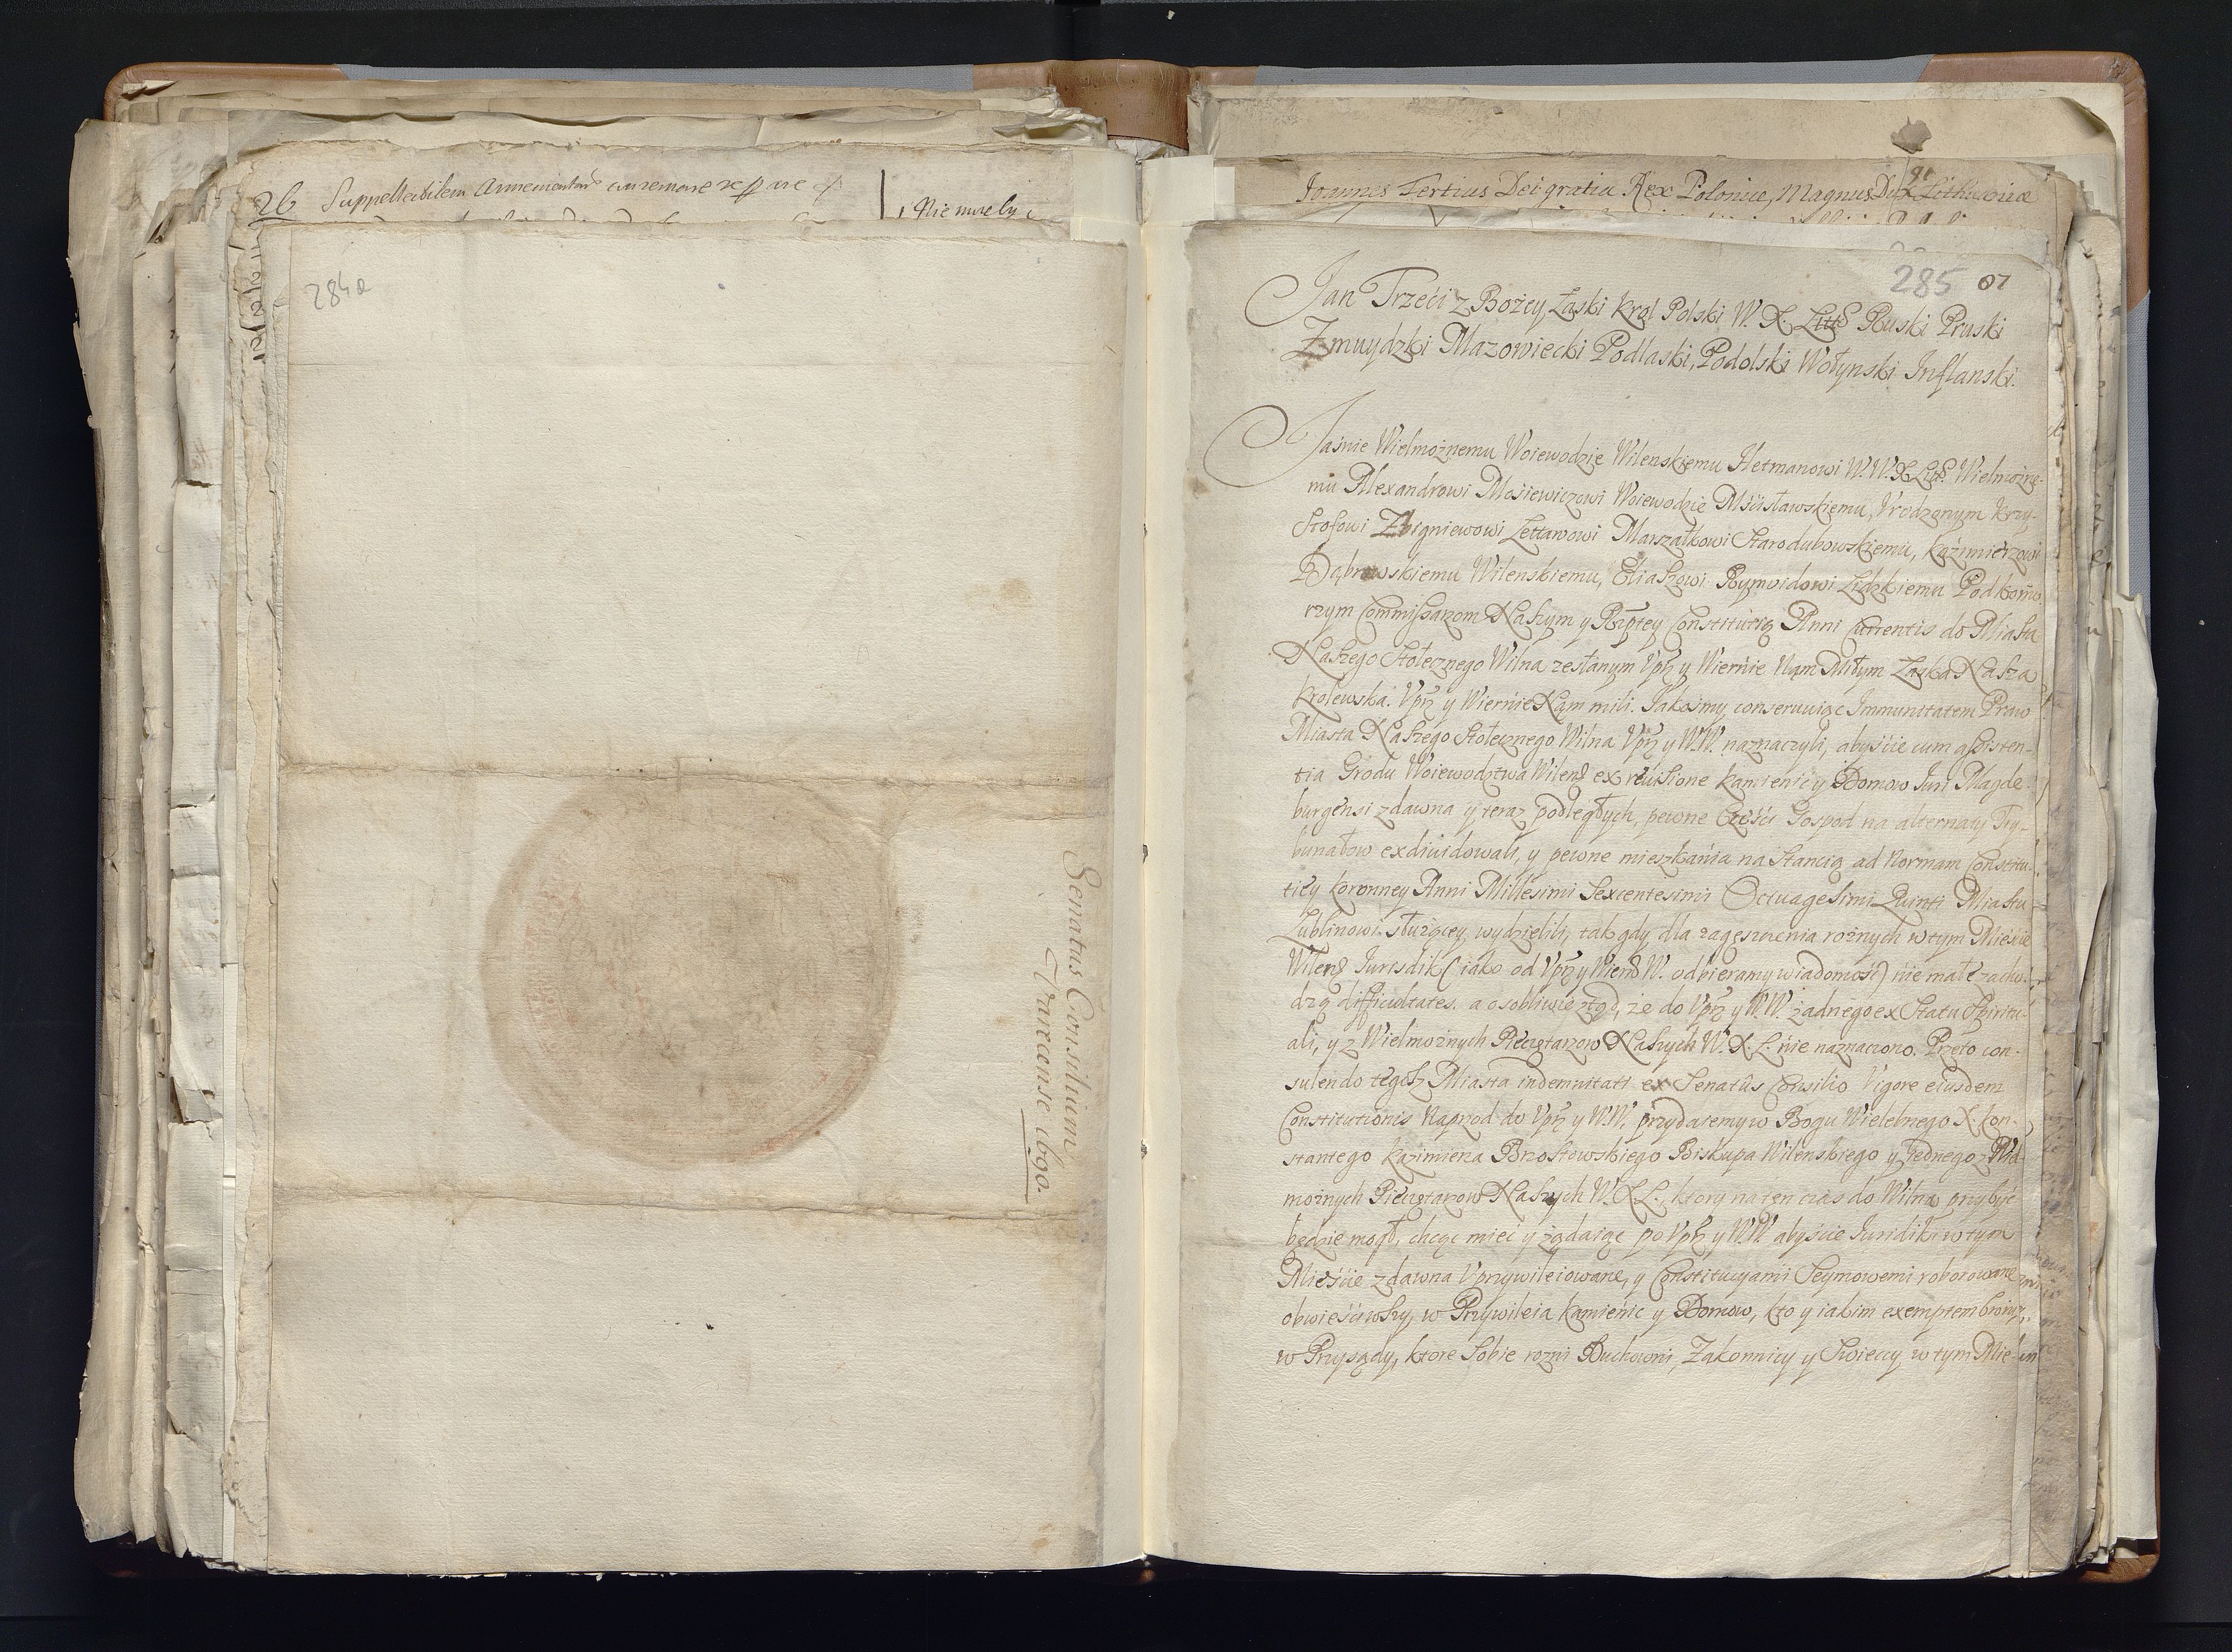 26 Suppellectilem
284a
Senatus Consilium
Varecense 1690.
Joannes Tertius Dei gratia Rex Poloniae, Magnus Dux Lithuaniae
285 87
Jan Trzeci z Bożey Łaski Krol Polski W. X. Litt Ruski Pruski
Zmuydzki Mazowiecki Podlaski, Podolski Wołynski Inflanski.
Jaśnie Wielmożnemu Woiewodzie Wilenskiemu Hetmanowi W. W. X Litt. Wielmożne-
mu Alexandrowi Mosiewiczowi Woiewodzie Mscisławskiemu, Vrodzonym Krzy-
sztofowi Zbigniewowi Lettawowi Marszałkowi Starodubowskiemu, Kazimierzowi
Dąbrowskiemu Wilenskiemu, Eliaszowi Rymwidowi Lidzkiemu Podkomo-
rzym Commissarzom Naszym y Rzptey Constitutią Anni Currentis do Miasta
Naszego Stołecznego Wilna zesłanym Vprz y Wiernie Nam Miłym Łaska Nasza
Krolewska. Vprz y Wiernie Nam mili. Jakośmy conseruuiąc Immunitatem Praw
Miasta Naszego Stołecznego Wilna Vprz y W.W. naznaczyli, abyście cum assisten-
tia Grodu Woiewodztwa Wilens ex reuisione Kamienic y Domow Juri Magde-
burgensi zdawna y teraz podległych, pewne Części Gospod na alternaty Try-
bunałow exdiuidowali, y pewne mieszkania na Stancią ad Normam Constitu-
tiey Koronney Anni Millesimi Sexcentesimi Octuagesimi Quinti Miastu
Lublinowi służącey wydzielili, tak gdy dla zagęszczenia rożnych w tym Mieście
Wilens Jurisdik (iako od Vprz y Wiern W. odbieramy wiadomość) nie małe zacho-
dzą difficultates. a osobliwie ztąd, że do Vprz y W.W. żadnego ex Statu Spiritu-
ali, y z Wielmożnych Pieczętarzow Naszych W. X. L. nie naznaczono. Przeto con-
sulendo tegosz Miasta indemnitati ex Senatûs Consilio Vigore eiusdem
Constitutionis Naprzod do Vprz y W.W. przydaiemy w Bogu Wielebnego X. Kon-
stantego Kazimierza Brzostowskiego Biskupa Wilenskiego y Jednego z Wiel-
możnych Pieczętarzow Naszych W. X L. ktory na ten czas do Wilna przybyć
będzie mogł, chcąc mieć y żądaiąc po Vprz y W.W. abyście Juridiki w tym
Mieście zdawna Vprzywileiowane, y Constitucyami Seymowemi roborowane
obwieściwszy, w Przywileia Kamienic y Domow, kto y iakim exemptem
w Przysądy, ktore Sobie rozni Duchowni, Zakonnicy y Swieccy w tym Mie-